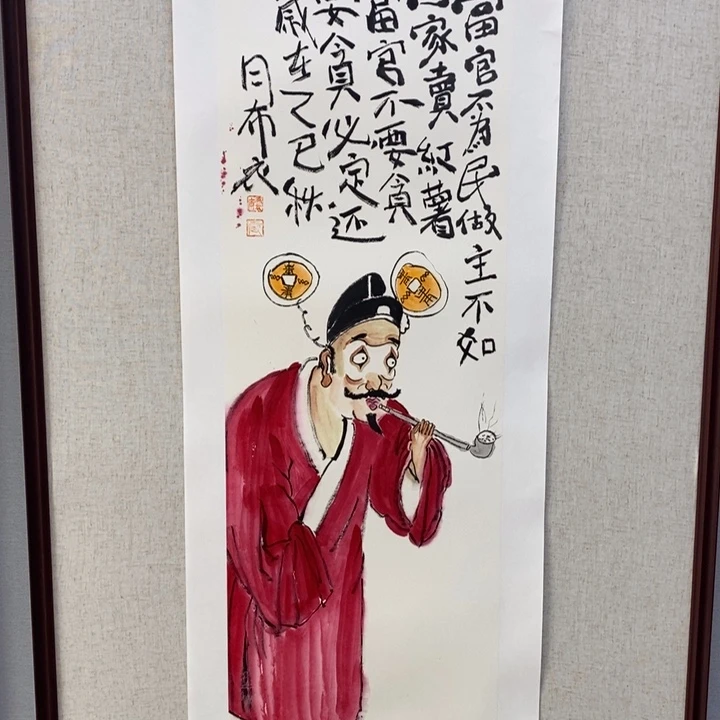 當官不为民做主不如
家賣紅薯
當官不要貪
要貪必定还
歲在乙巳秋
布衣